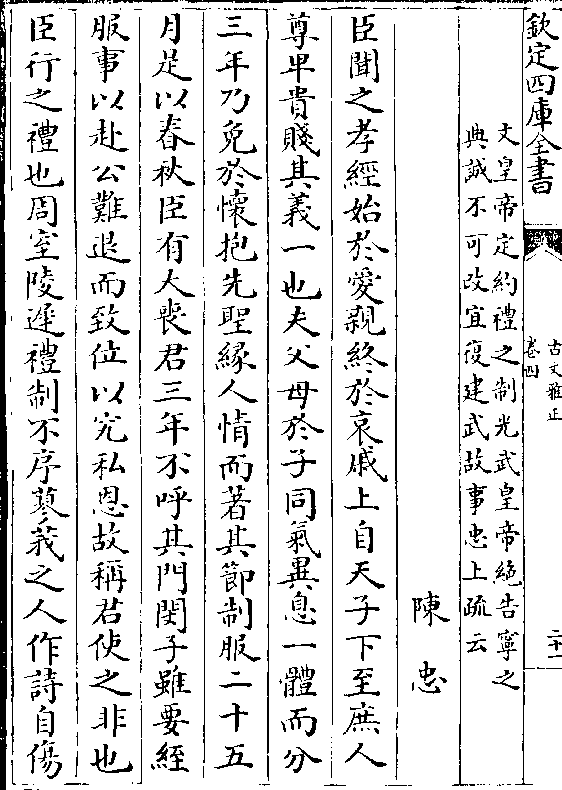 欽定四庫全書
古文雅正
卷四
二十一
文皇帝定約禮之制光武皇帝絶告寧之
典誠不可改宜復建武故事忠上疏云
陳忠
臣聞之孝經始於愛親終於哀戚上自天子下至庶人
尊卑貴賤其義一也夫父母於子同氣異息一體而分
三年乃免於懷抱先聖緣人情而著其節制服二十五
月是以春秋臣有大喪君三年不呼其門閔子雖要絰
服事以赴公難退而致位以究私恩故稱君使之非也
臣行之禮也周室陵遲禮制不序蓼莪之人作詩自傷